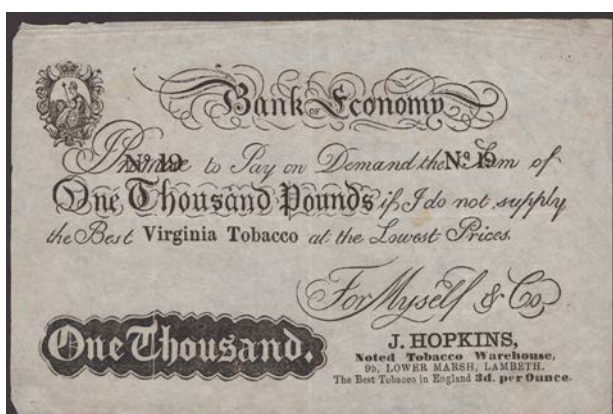 Bank of Economy
I Promise to Pay on Demand the Sum of
Nº 19 Nº 19
One Thousand Pounds if I do not supply
the Best Virginia Tobacco at the Lowest Prices.
For Myself & Co.
One Thousand.
J. HOPKINS,
Noted Tobacco Warehouse,
95, LOWER MARSH, LAMBETH.
The Best Tobacco in England 3d. per Ounce.